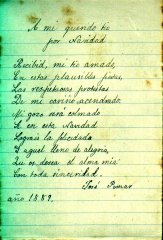 A mi querido tío
por Navidad
Recibid, mi tío amado,
En estas plausibles pascuas,
Las respetuosas protestas
De mi cariño acendrado.
Mi gozo será colmado
Si en esta Navidad
Lográis la felicidad
Y aquel lleno de alegría
Que os desea el alma mía
Con toda sinceridad.
José Pomar
año 1889.